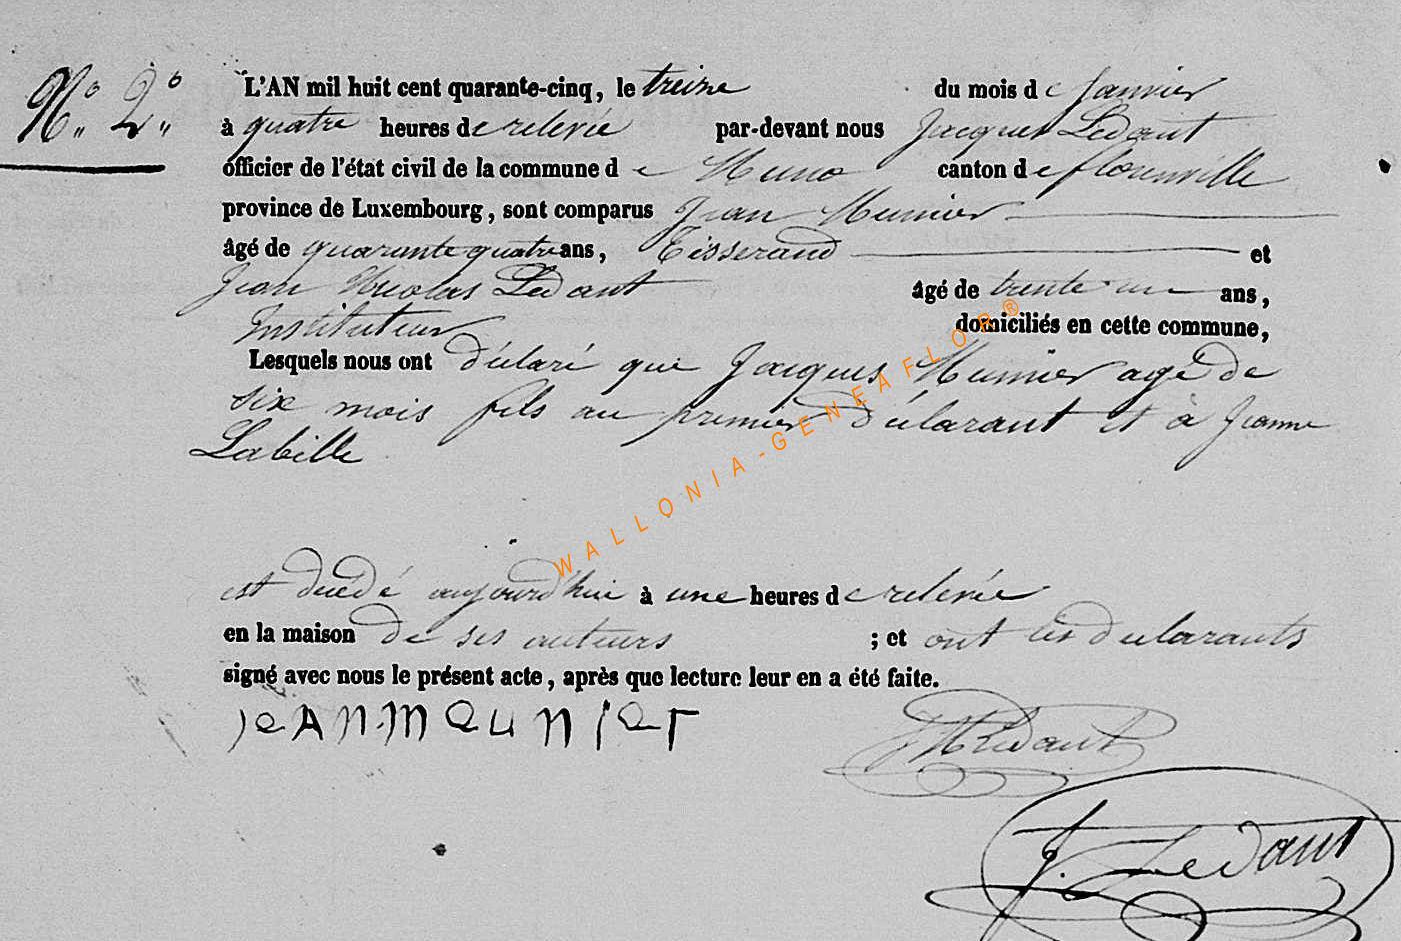 N° 2°
L'AN mil huit cent quarante-cinq, le treize du mois de Janvier
à quatre heures de relevée par-devant nous Jacques Ledant
officier de l'état civil de la commune de Muno canton de florenville
province de Luxembourg, sont comparus Jean Munier
âgé de quarante quatre ans, Tisserand et
Jean Nicolas Ledant âgé de trente un ans,
Instituteur domiciliés en cette commune,
Lesquels nous ont déclaré que Jacques Munier agé de
six mois fils au premier déclarant et à Jeanne
Labille
est décédé aujourd'hui à une heures de relevée
en la maison de ses auteurs ; et ont les déclarants
signé avec nous le présent acte, après que lecture leur en a été faite.
jeAN MeUNIer
JNLedant
J. Ledant
WALLONIA-GENEAFLOR®